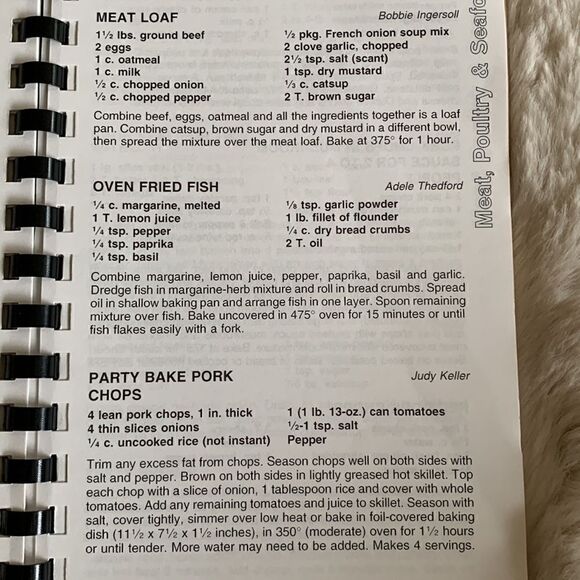 MEAT LOAF Bobbie Ingersoll
1½ lbs. ground beef ½ pkg. French onion soup mix
2 eggs 2 clove garlic, chopped
1 c. oatmeal 2½ tsp. salt (scant)
1 c. milk 1 tsp. dry mustard
½ c. chopped onion ⅓ c. catsup
½ c. chopped pepper 2 T. brown sugar
Combine beef, eggs, oatmeal and all the ingredients together is a loaf
pan. Combine catsup, brown sugar and dry mustard in a different bowl,
then spread the mixture over the meat loaf. Bake at 375° for 1 hour.
OVEN FRIED FISH Adele Thedford
¼ c. margarine, melted ⅛ tsp. garlic powder
1 T. lemon juice 1 lb. fillet of flounder
¼ tsp. pepper ¼ c. dry bread crumbs
¼ tsp. paprika 2 T. oil
¼ tsp. basil
Combine margarine, lemon juice, pepper, paprika, basil and garlic.
Dredge fish in margarine-herb mixture and roll in bread crumbs. Spread
oil in shallow baking pan and arrange fish in one layer. Spoon remaining
mixture over fish. Bake uncovered in 475° oven for 15 minutes or until
fish flakes easily with a fork.
PARTY BAKE PORK Judy Keller
CHOPS
4 lean pork chops, 1 in. thick 1 (1 lb. 13-oz.) can tomatoes
4 thin slices onions ½-1 tsp. salt
¼ c. uncooked rice (not instant) Pepper
Trim any excess fat from chops. Season chops well on both sides with
salt and pepper. Brown on both sides in lightly greased hot skillet. Top
each chop with a slice of onion, 1 tablespoon rice and cover with whole
tomatoes. Add any remaining tomatoes and juice to skillet. Season with
salt, cover tightly, simmer over low heat or bake in foil-covered baking
dish (11½ x 7½ x 1½ inches), in 350° (moderate) oven for 1½ hours
or until tender. More water may need to be added. Makes 4 servings.
Meat, Poultry & Seafo